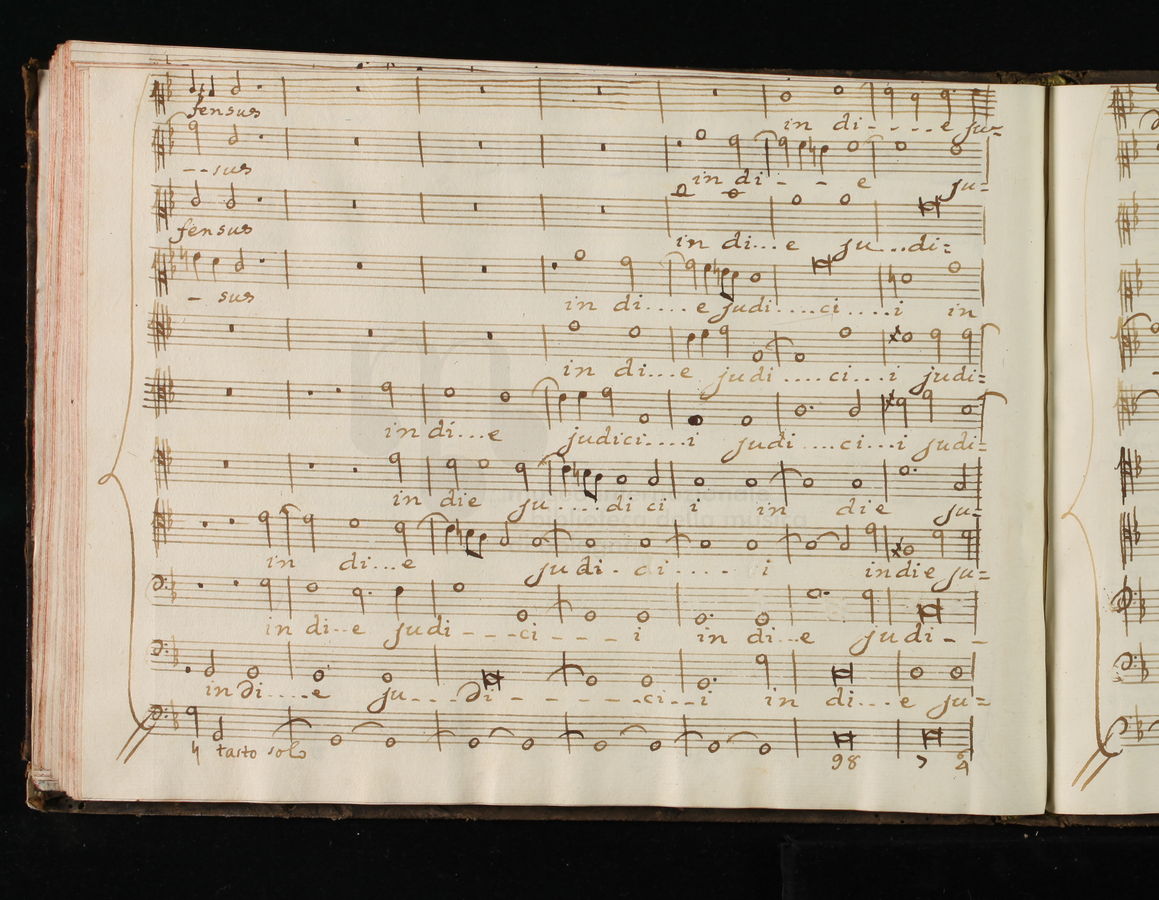 fensus
in di - - . . e ju=
- - sus
in di - - e ju=
fensus
in di...e ju...di=
- sus
in di....e judi....ci....i in
in di...e judi....ci...i judi=
in di...e judici....i judi....ci...i judi=
in die ju....di ci i in die ju=
in di...e judi. ci.....i in die ju=
in di..e judi - - - ci - - - i in di..e judi - -
in di....e ju...di - - - - - .ci...i in di...e ju=
tasto solo
98 7